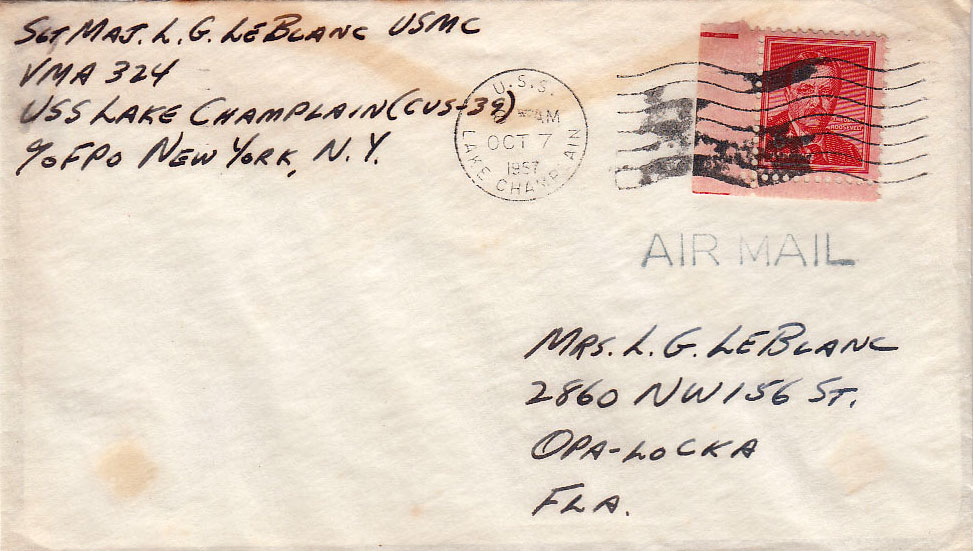 SGT MAJ. L. G. LEBLANC USMC
VMA 324
USS LAKE CHAMPLAIN (CVS-39)
c/o FPO NEW YORK, N.Y.
U.S.S.
AM
OCT 7
1957
LAKE CHAMPLAIN
ROOSEVELT
AIR MAIL
MRS. L. G. LEBLANC
2860 NW 156 ST.
OPA-LOCKA
FLA.